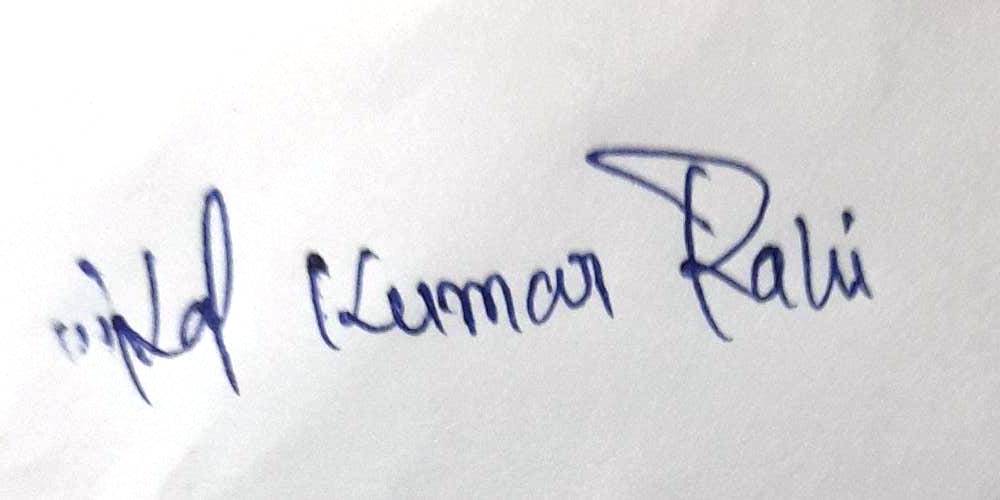 Kumar Rahi